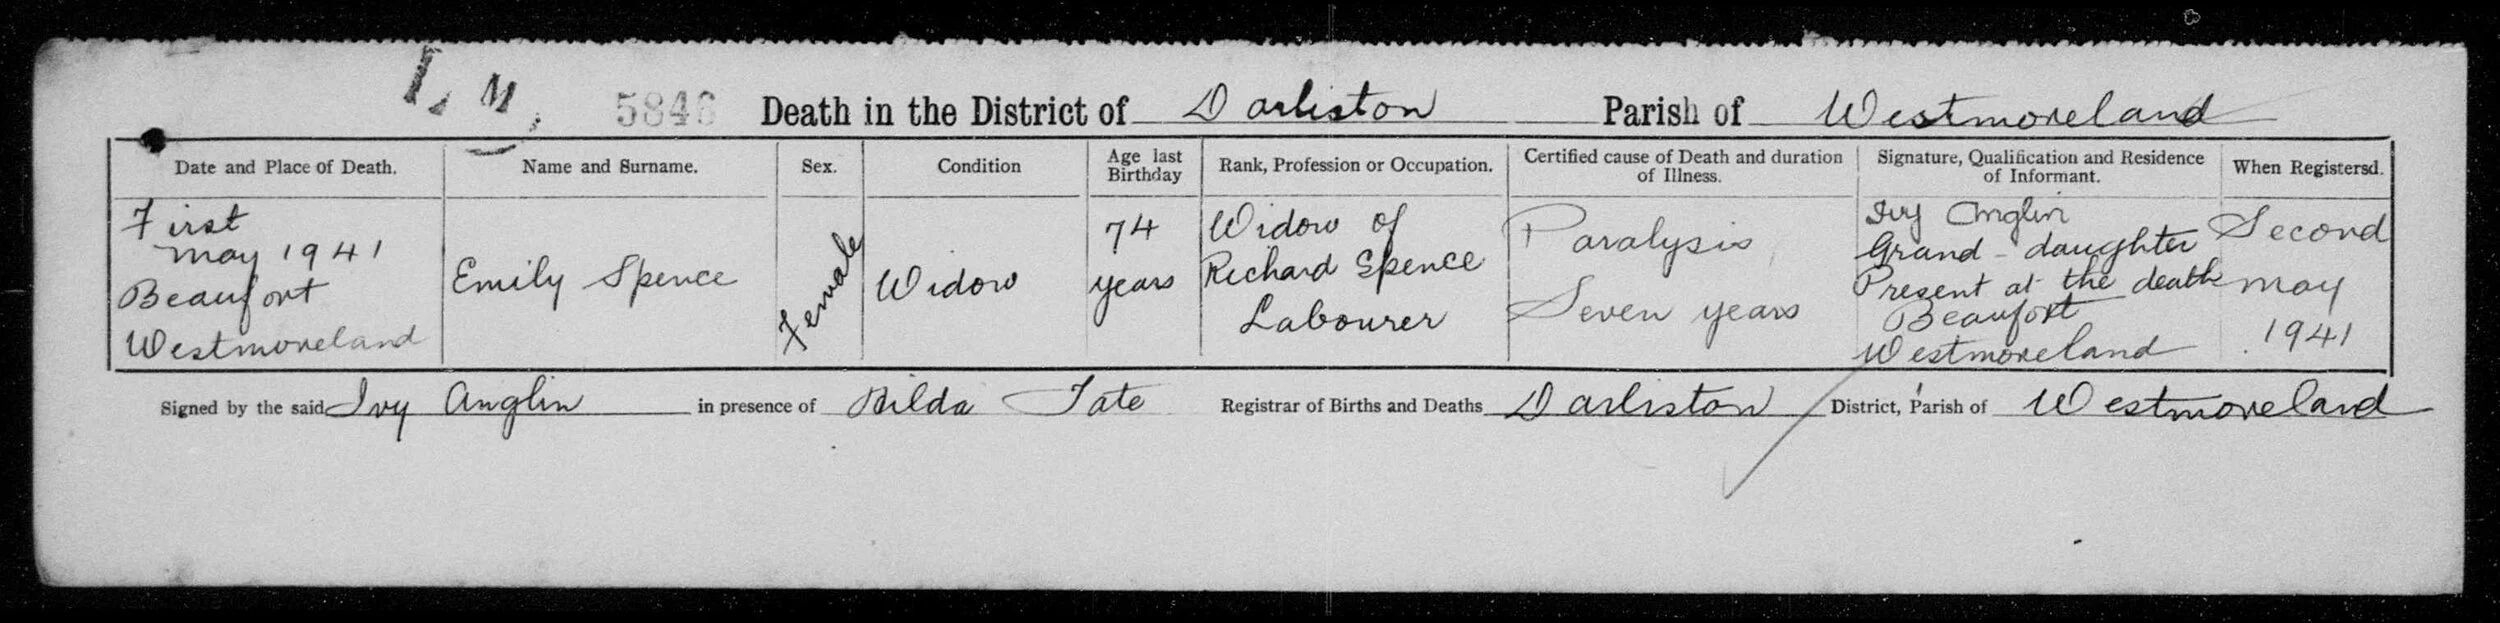 I, M,
5846 Death in the District of Darliston Parish of Westmoreland
Date and Place of Death. Name and Surname. Sex. Condition Age last Birthday Rank, Profession or Occupation. Certified cause of Death and duration of Illness. Signature, Qualification and Residence of Informant. When Registersd.
First
May 1941
Beaufort
Westmoreland
Emily Spence
Female
Widow
74
years
Widow of
Richard Spence
Labourer
Paralysis
Seven years
Ivy Anglin
Grand-daughter
Present at the death
Beaufort
Westmoreland
Second
May
1941
Signed by the said Ivy Anglin in presence of Hilda Tate Registrar of Births and Deaths Darliston District, Parish of Westmoreland